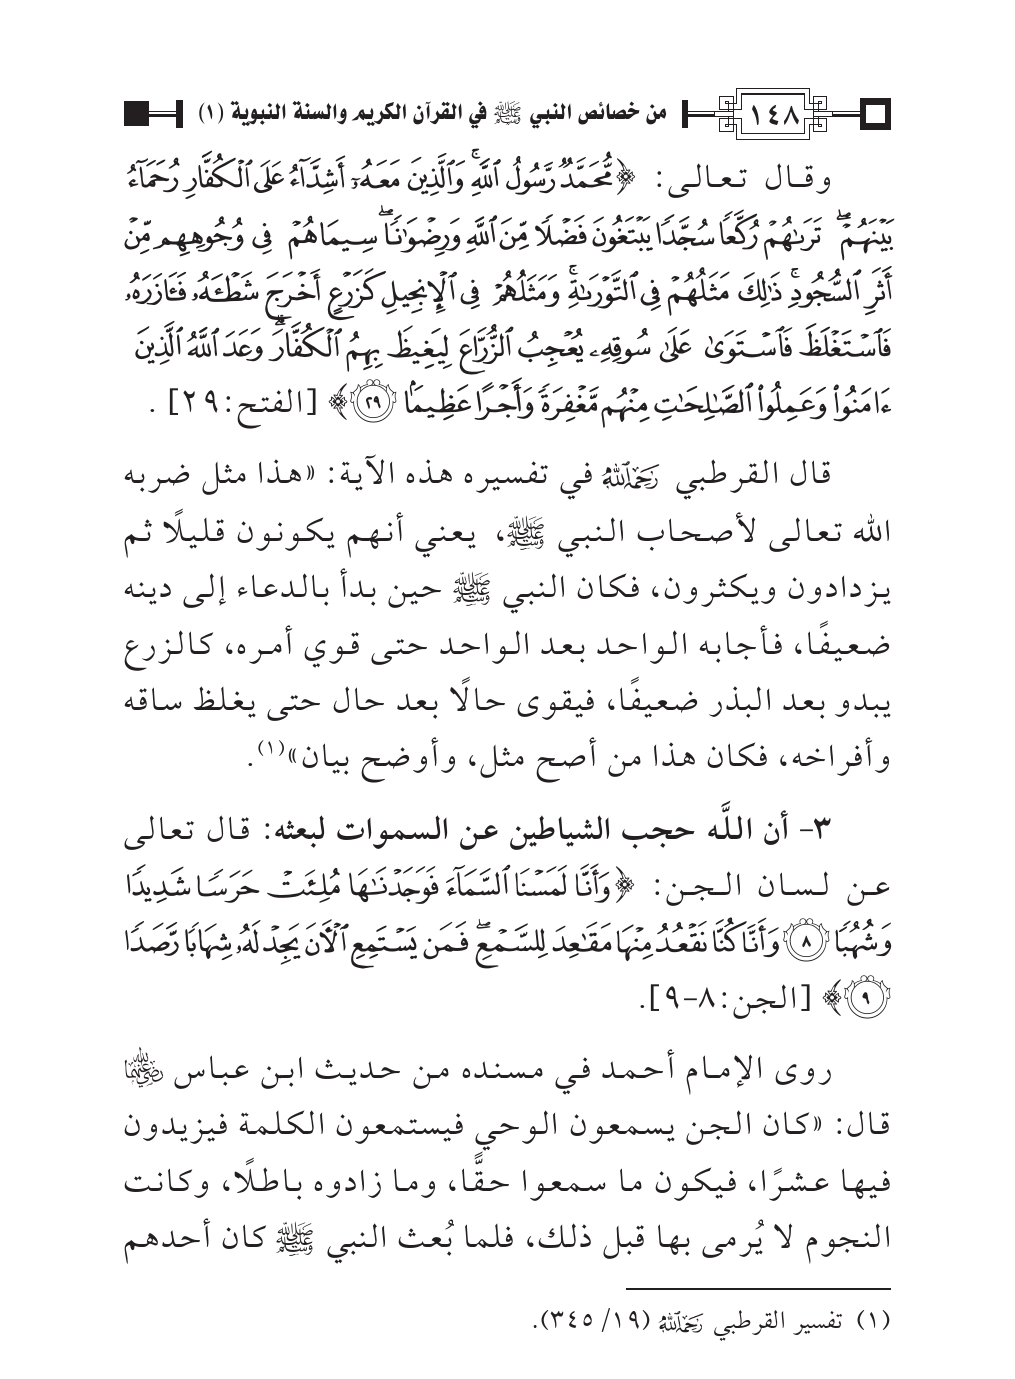 ١٤٨ من خصائص النبي ﷺ في القرآن الكريم والسنة النبوية (١)
وقال تعالى: ﴿مُّحَمَّدٌ رَّسُولُ ٱللَّهِۚ وَٱلَّذِينَ مَعَهُۥٓ أَشِدَّآءُ عَلَى ٱلْكُفَّارِ رُحَمَآءُ
بَيْنَهُمْۖ تَرَىٰهُمْ رُكَّعًا سُجَّدًا يَبْتَغُونَ فَضْلًا مِّنَ ٱللَّهِ وَرِضْوَٰنًاۖ سِيمَاهُمْ فِى وُجُوهِهِم مِّنْ
أَثَرِ ٱلسُّجُودِۚ ذَٰلِكَ مَثَلُهُمْ فِى ٱلتَّوْرَىٰةِۚ وَمَثَلُهُمْ فِى ٱلْإِنجِيلِ كَزَرْعٍ أَخْرَجَ شَطْـَٔهُۥ فَـَٔازَرَهُۥ
فَٱسْتَغْلَظَ فَٱسْتَوَىٰ عَلَىٰ سُوقِهِۦ يُعْجِبُ ٱلزُّرَّاعَ لِيَغِيظَ بِهِمُ ٱلْكُفَّارَۗ وَعَدَ ٱللَّهُ ٱلَّذِينَ
ءَامَنُوا۟ وَعَمِلُوا۟ ٱلصَّٰلِحَٰتِ مِنْهُم مَّغْفِرَةً وَأَجْرًا عَظِيمًۢا ٢٩﴾ [الفتح:٢٩] .
قال القرطبي رَحِمَهُ ٱللَّهُ في تفسيره هذه الآية: «هذا مثل ضربه
الله تعالى لأصحاب النبي ﷺ، يعني أنهم يكونون قليلًا ثم
يزدادون ويكثرون، فكان النبي ﷺ حين بدأ بالدعاء إلى دينه
ضعيفًا، فأجابه الواحد بعد الواحد حتى قوي أمره، كالزرع
يبدو بعد البذر ضعيفًا، فيقوى حالًا بعد حال حتى يغلظ ساقه
وأفراخه، فكان هذا من أصح مثل، وأوضح بيان»(١).
٣- أن اللَّه حجب الشياطين عن السموات لبعثه: قال تعالى
عن لسان الجن: ﴿وَأَنَّا لَمَسْنَا ٱلسَّمَآءَ فَوَجَدْنَٰهَا مُلِئَتْ حَرَسًا شَدِيدًا
وَشُهُبًا ٨ وَأَنَّا كُنَّا نَقْعُدُ مِنْهَا مَقَٰعِدَ لِلسَّمْعِۖ فَمَن يَسْتَمِعِ ٱلْـَٔانَ يَجِدْ لَهُۥ شِهَابًا رَّصَدًا
٩﴾ [الجن:٨-٩].
روى الإمام أحمد في مسنده من حديث ابن عباس رَضِيَ ٱللَّهُ عَنْهُمَا
قال: «كان الجن يسمعون الوحي فيستمعون الكلمة فيزيدون
فيها عشرًا، فيكون ما سمعوا حقًّا، وما زادوه باطلًا، وكانت
النجوم لا يُرمى بها قبل ذلك، فلما بُعث النبي ﷺ كان أحدهم
(١) تفسير القرطبي رَحِمَهُ ٱللَّهُ (١٩/ ٣٤٥).